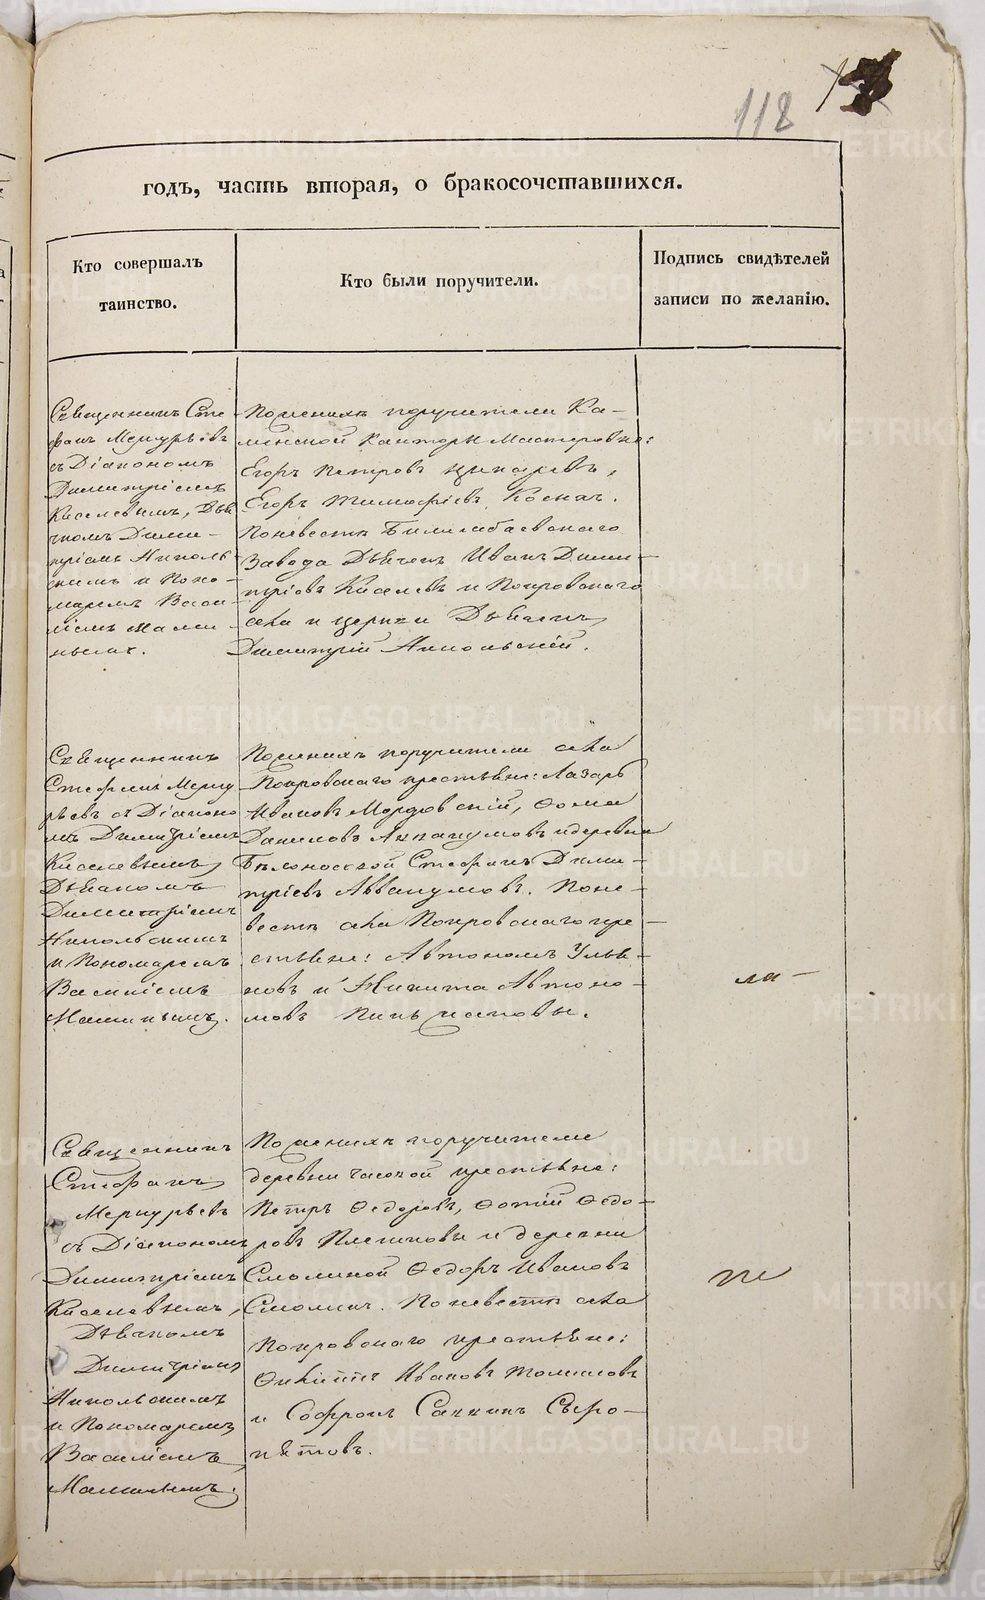 118
годъ, часть вторая, о бракосочетавшихся.
Кто совершалъ
таинство.
Кто были поручители.
Подпись свидѣтелей
записи по желанію.
Священникъ Сте
фанъ Меркурьевъ
съ Діакономъ
Димитріемъ
Киселевымъ, Дья
чкомъ Дими-
тріемъ Николь
скимъ и Поно-
маремъ Васи-
ліемъ Мами
нымъ.
По женихѣ поручители Ка-
менской Канторы Мастеровые:
Егоръ Петровъ
Егоръ Тимофѣевъ
По невестѣ Билимбаевскаго
Завода Дьячекъ Иванъ Дими-
тріевъ Киселевъ и Покровскаго
села и церкви Дьячекъ
Димитрій Никольскій.
Священникъ
Стефанъ Мерку
рьевъ съ Діаконо
мъ Димитріемъ
Киселевымъ
Дьячкомъ
Димитріемъ
Никольскимъ
и Пономаремъ
Василіемъ
Маминымъ.
По женихѣ поручители села
Покровскаго крестьяне: Лазарь
Ивановъ Мордовскій, Ѳома
Даниловъ Аввакумовъ и деревни
Белоносовой Стефанъ Дими-
тріевъ Аввакумовъ. По не-
вестѣ села Покровскаго кре-
стьяне: Автономъ Улья-
новъ и Никита Автоно-
мовъ
Священникъ
Стефанъ
Меркурьевъ
съ Діакономъ
Димитріемъ
Киселевымъ,
Дьячкомъ
Димитріемъ
Никольскимъ
и Пономаремъ
Василіемъ
Маминымъ.
По женихѣ поручители
деревни Часовой крестьяне:
Петръ Ѳедоровъ, Ѳотій Ѳедо-
ровъ и деревни
Смолиной Ѳедоръ Ивановъ
Смолинъ. По невестѣ села
Покровскаго крестьяне:
Ивановъ
и Софронъ Саввинъ Сыро-
пятовъ.
METRIKI.GASO-URAL.RU